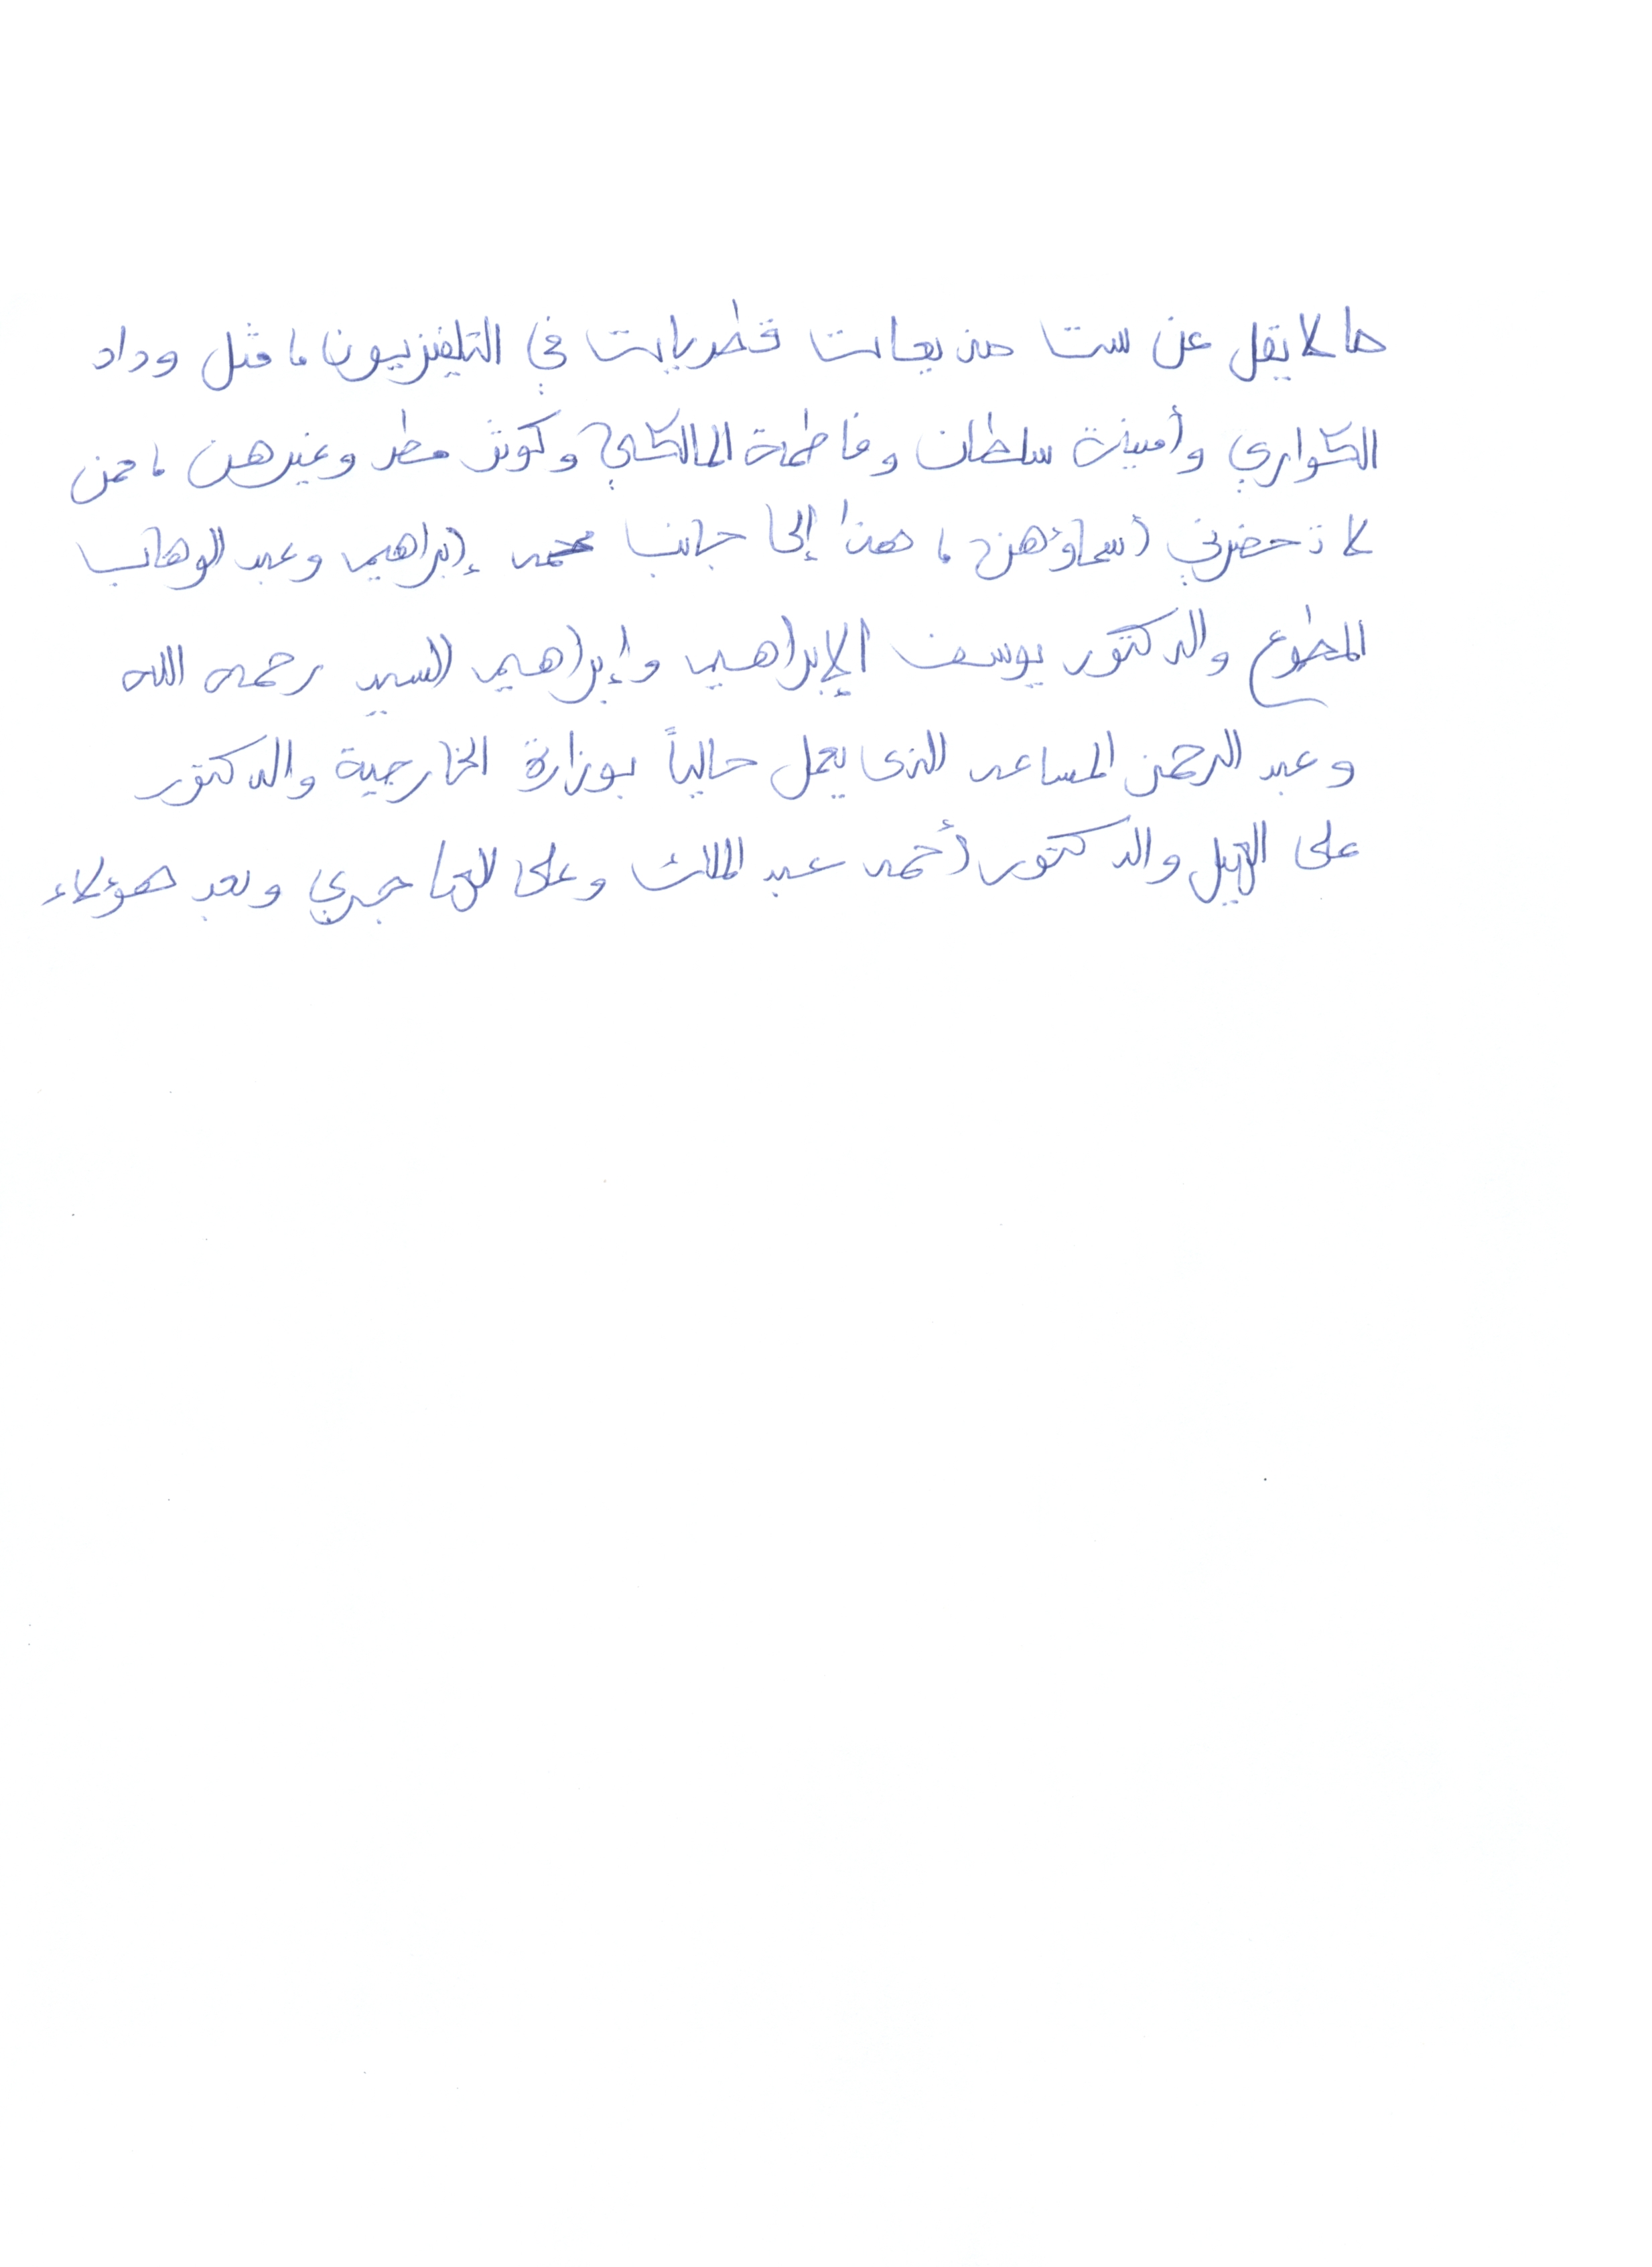 ما لا يقل عن ست مذيعات قطريات في التليفزيون، مثل وداد
الكواري وأمينة سلطان وفاطمة المالكي وكوثر مطر وغيرهن، ممن
لا تحضرني أسماؤهن، هذا إلى جانب محمد إبراهيم وعبد الوهاب
المطوع والدكتور يوسف الإبراهيم وإبراهيم السيد رحمه الله
وعبد الرحمن المساعد الذى يعمل حالياً بوزارة الخارجية والدكتور
على والدكتور أحمد عبد الملك وعلى الهاجري وبعد هؤلاء